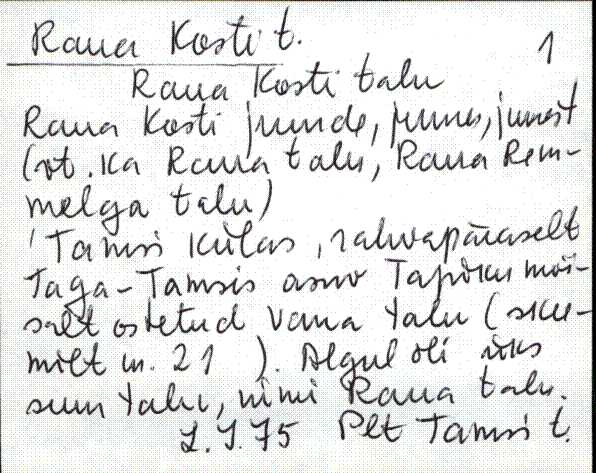 Raua Kosti t. 1
Raua Kosti talu
Raua Kosti juurde, juures, juurest
(vt. ka Raua talu, Raua Rem-
melga talu)
Tamsi külas, rahvapäraselt
Taga-Tamsis asuv Tapiku mõi-
salt ostetud vana talu (
21 ). Algul oli üks
suur talu, nimi Raua talu.
75 Plt Tamsi t.